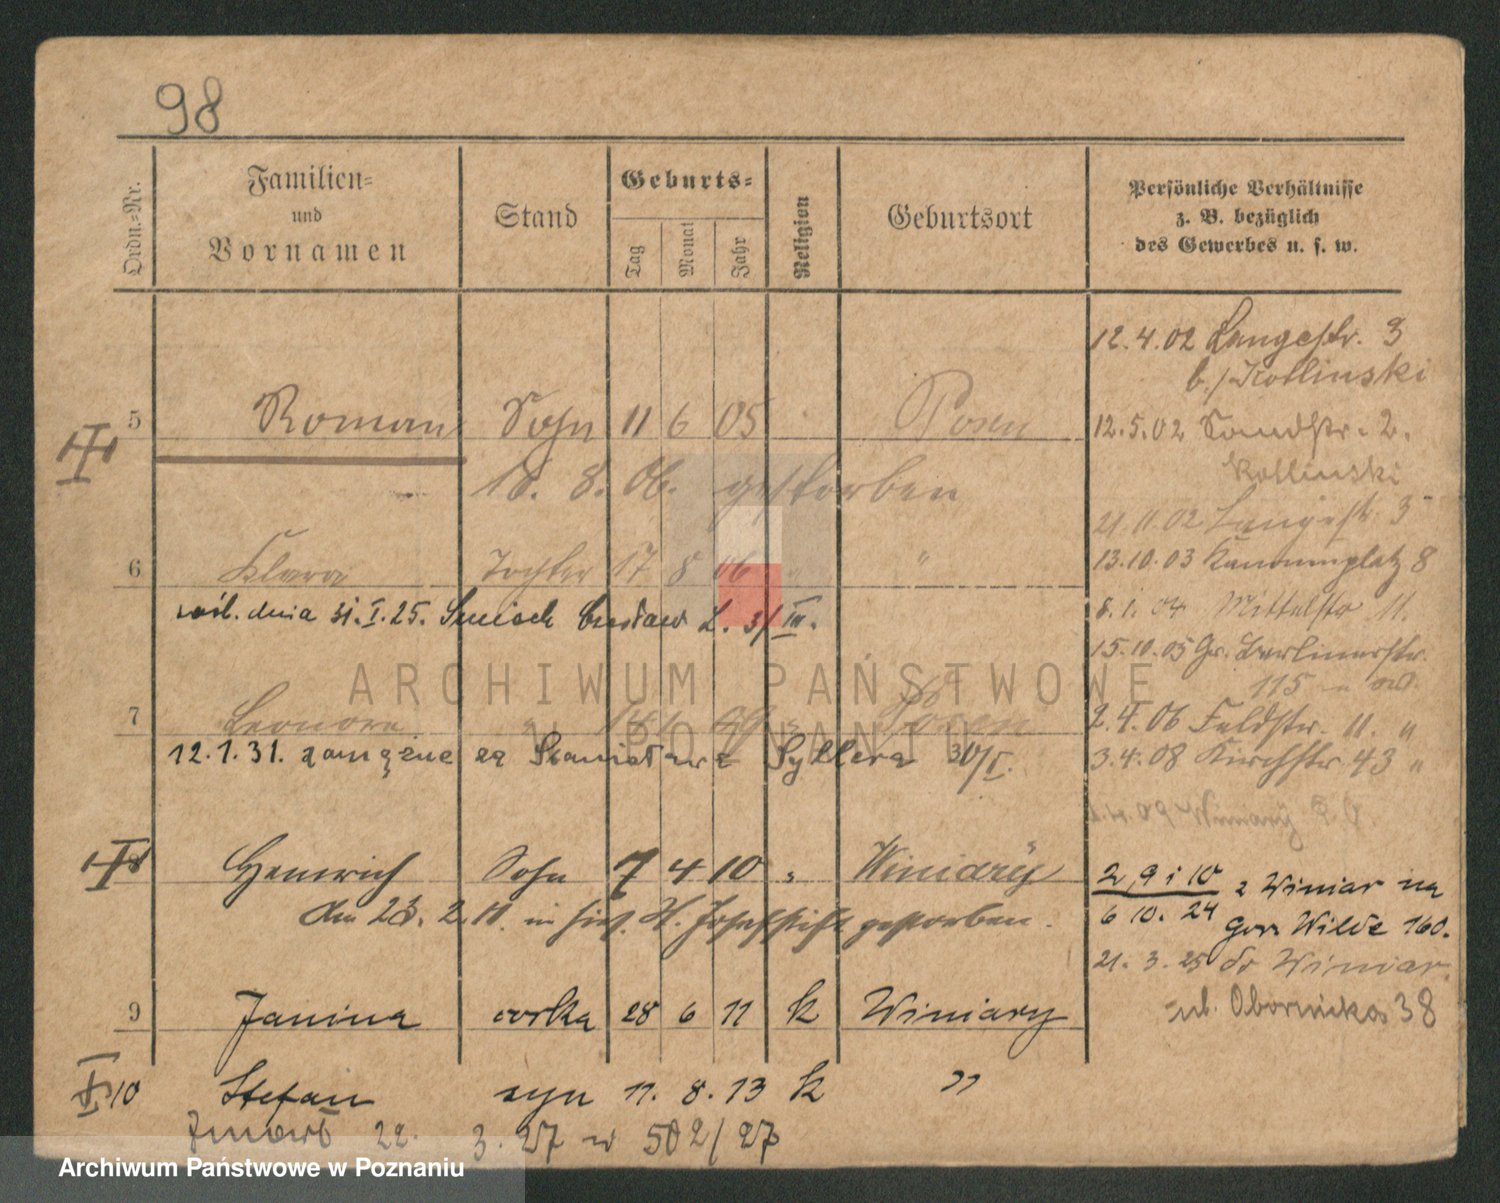 98
Ordn.-Nr. Familien- und Vornamen Stand Geburts- Tag Monat Jahr Religion Geburtsort Persönliche Verhältnisse z. B. bezüglich des Gewerbes u. s. w.
12.4.02 Langestr. 3
b./Kotlinski
5 Roman Sohn 11 6 05 Posen
12.5.02 Sandstr. 2.
Kotlinski
18. 8. 06. gestorben
21.11.02 Langestr. 3
6 Klara Tochter 17 8 06 " "
13.10.03 Kanonenplatz 8
dnia 31.I.25. L. 31/III.
8.1.04 Mittelstr 11.
15.10.05 Gr. Berlinerstr.
115
7 Leonore " Posen
2.4.06 Feldstr. 11. "
12.1.31. zamężne za Stanisława Syllera 30/I.
3.4.08 Kirchstr. 43 "
09 Winiary
8 Heinrich Sohn 7 4 10 " Winiary
2, 9 i 10 z Winiar na
6 10. 24 Gór. Wilde 160.
den 23. 2. 11. im hies. St. Josefstift gestorben.
21. 3. 25 do Winiar
ul. Obornicka 38
9 Janina córka 28 6 11 k Winiary
10 Stefan syn 11. 8. 13 k "
Zmarł 22. 3. 27 w 502/27
ARCHIWUM PAŃSTWOWE
W POZNANIU
Archiwum Państwowe w Poznaniu